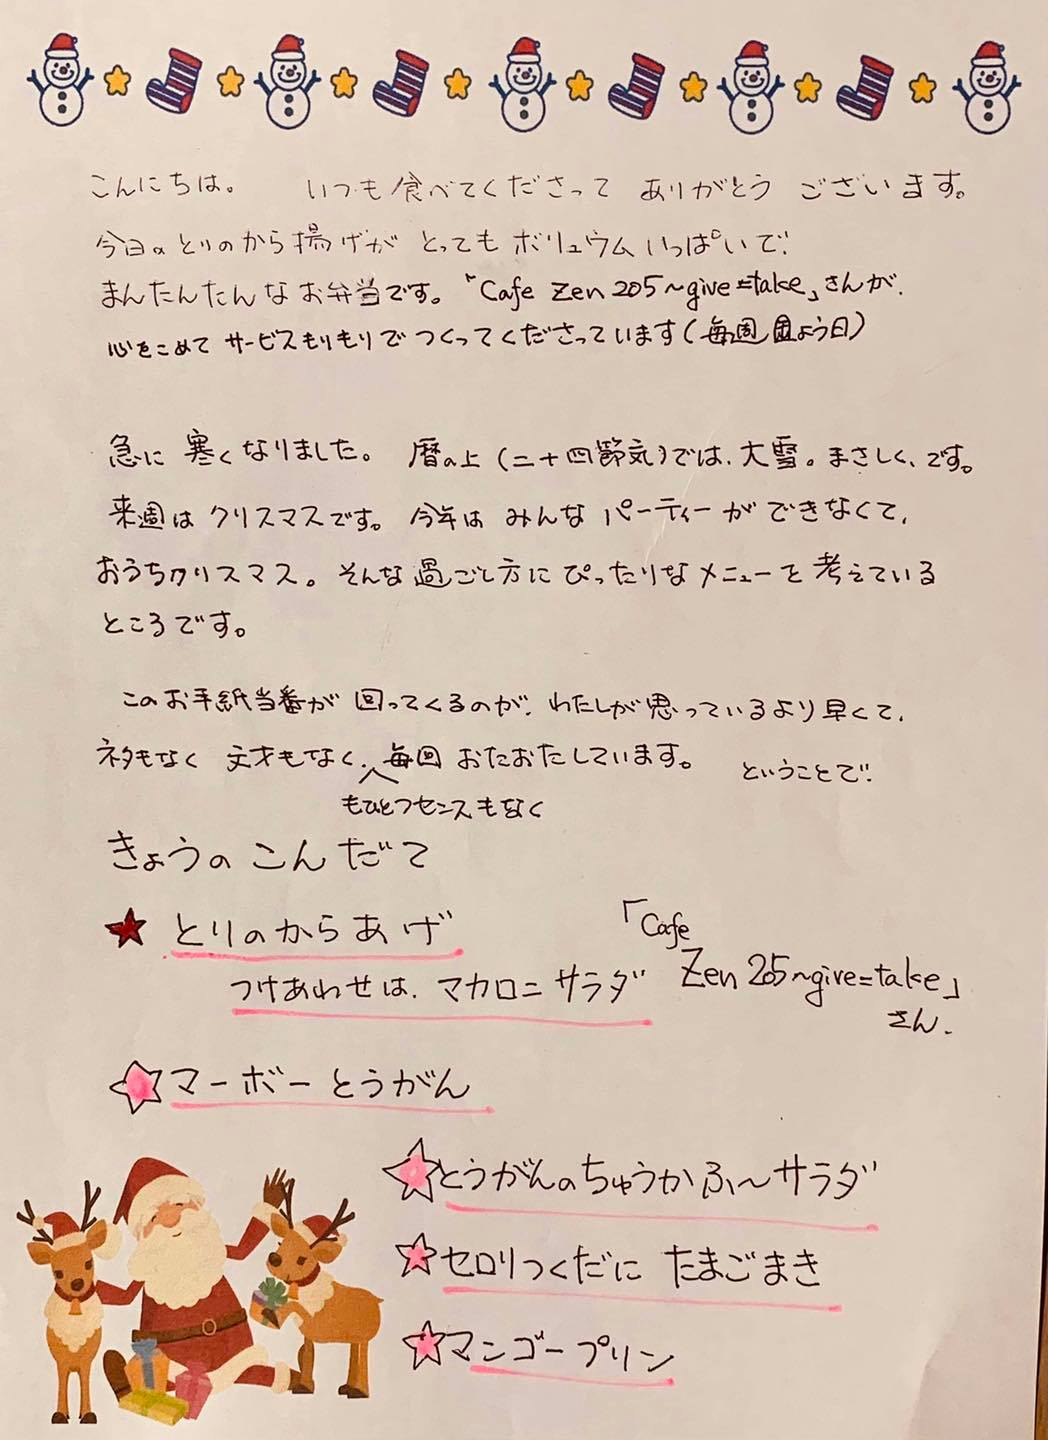 こんにちは。 いつも食べてくださって ありがとう ございます。
今日のとりのから揚げが とってもボリュウムいっぱいで、
まんたんたんなお弁当です。「Cafe Zen 205～give=take」さんが、
心をこめて サービスもりもりで つくってくださっています(毎週金よう日)
急に 寒くなりました。 暦の上(二十四節気)では、大雪。まさしく、です。
来週は クリスマスです。 今年は みんな パーティーが できなくて、
おうちクリスマス。そんな 過ごし方に ぴったりな メニューを 考えている
ところです。
このお手紙当番が 回ってくるのが、わたしが思っているより 早くて、
ネタもなく 文才もなく、毎回 おたおたしています。 ということで、
もひとつセンスもなく
きょうの こんだて
とりのからあげ
つけあわせは、マカロニ サラダ
「Cafe
Zen 205～give=take」
さん.
マーボー とうがん
とうがんの ちゅうかふ～サラダ
セロリつくだに たまごまき
マンゴープリン